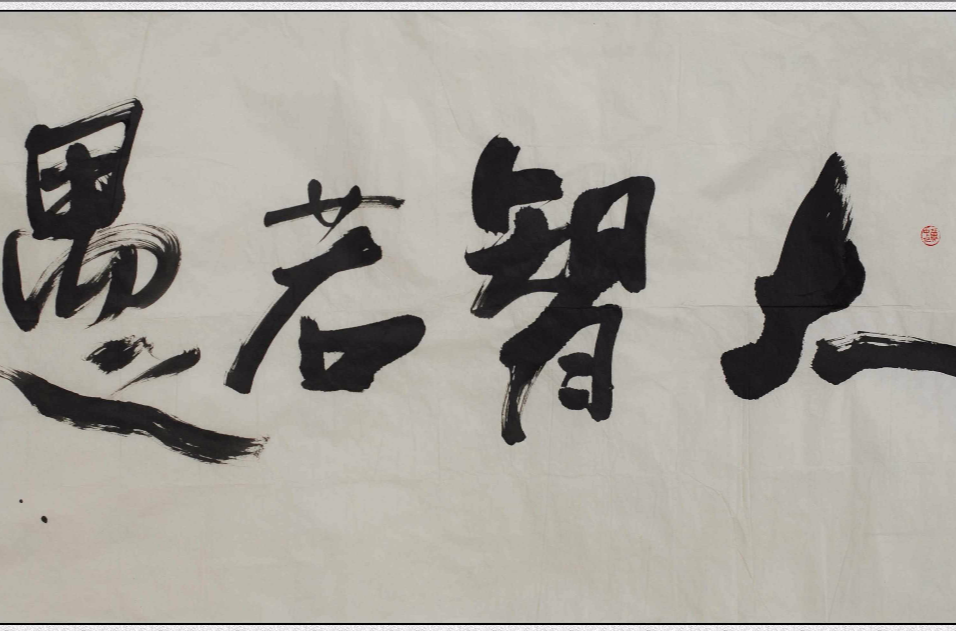 大智若愚